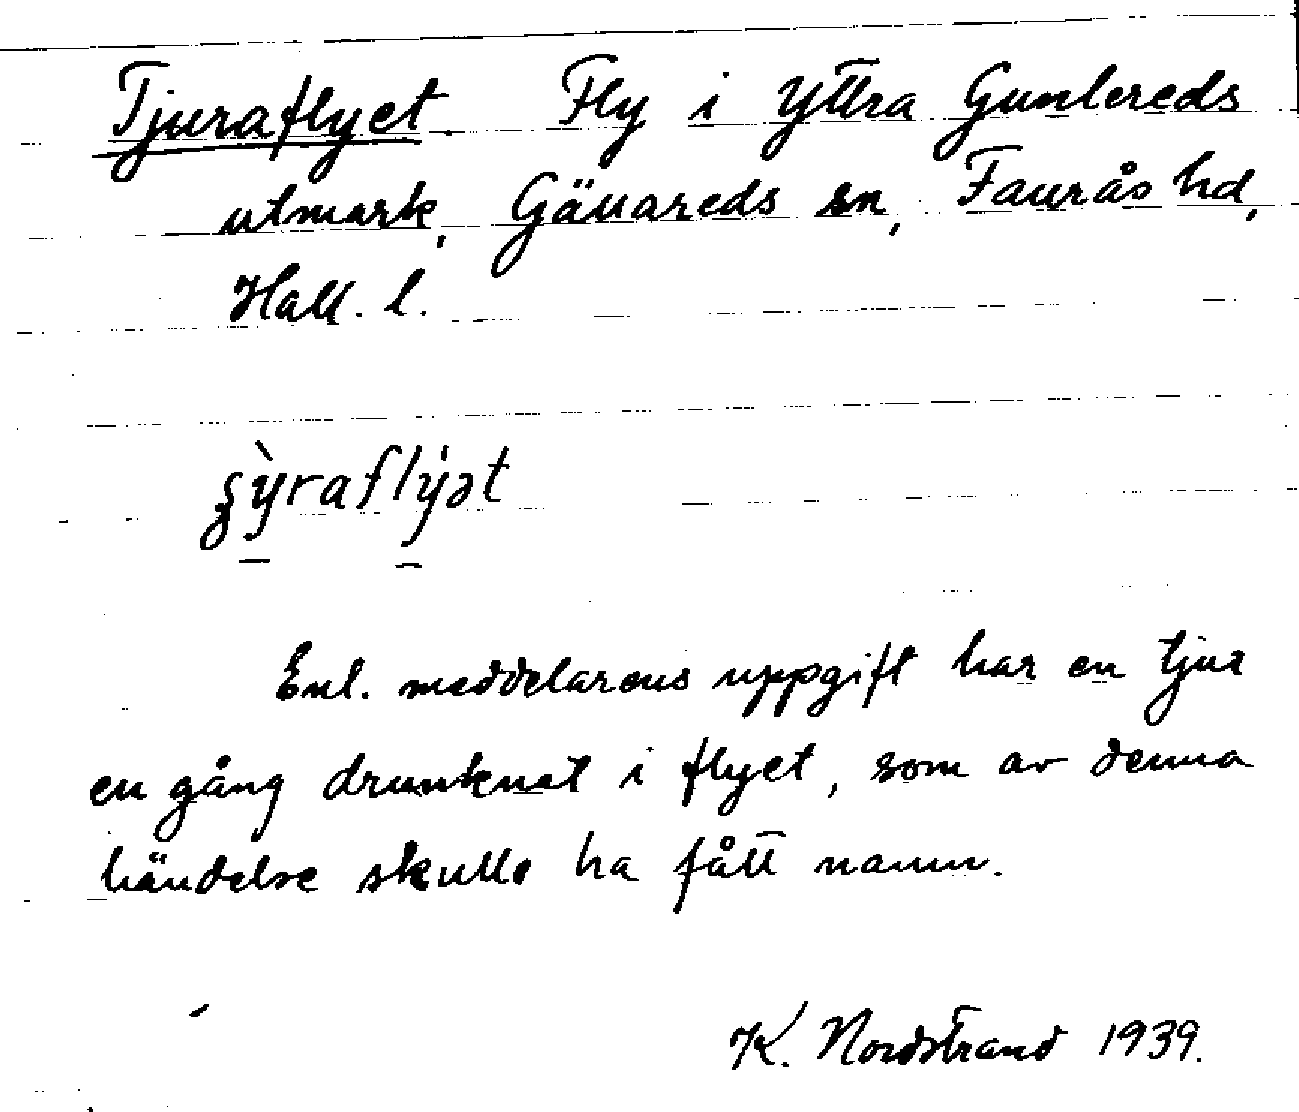 Tjuraflyet. Fly i Yttra Gunlereds
utmark, Gällareds sn, Faurås hd,
Hall. l.
Enl. meddelarens uppgift har en tjur
en gång drunknat i flyet, som av denna
händelse skulle ha fått namn.
K. Nordstrand 1939.